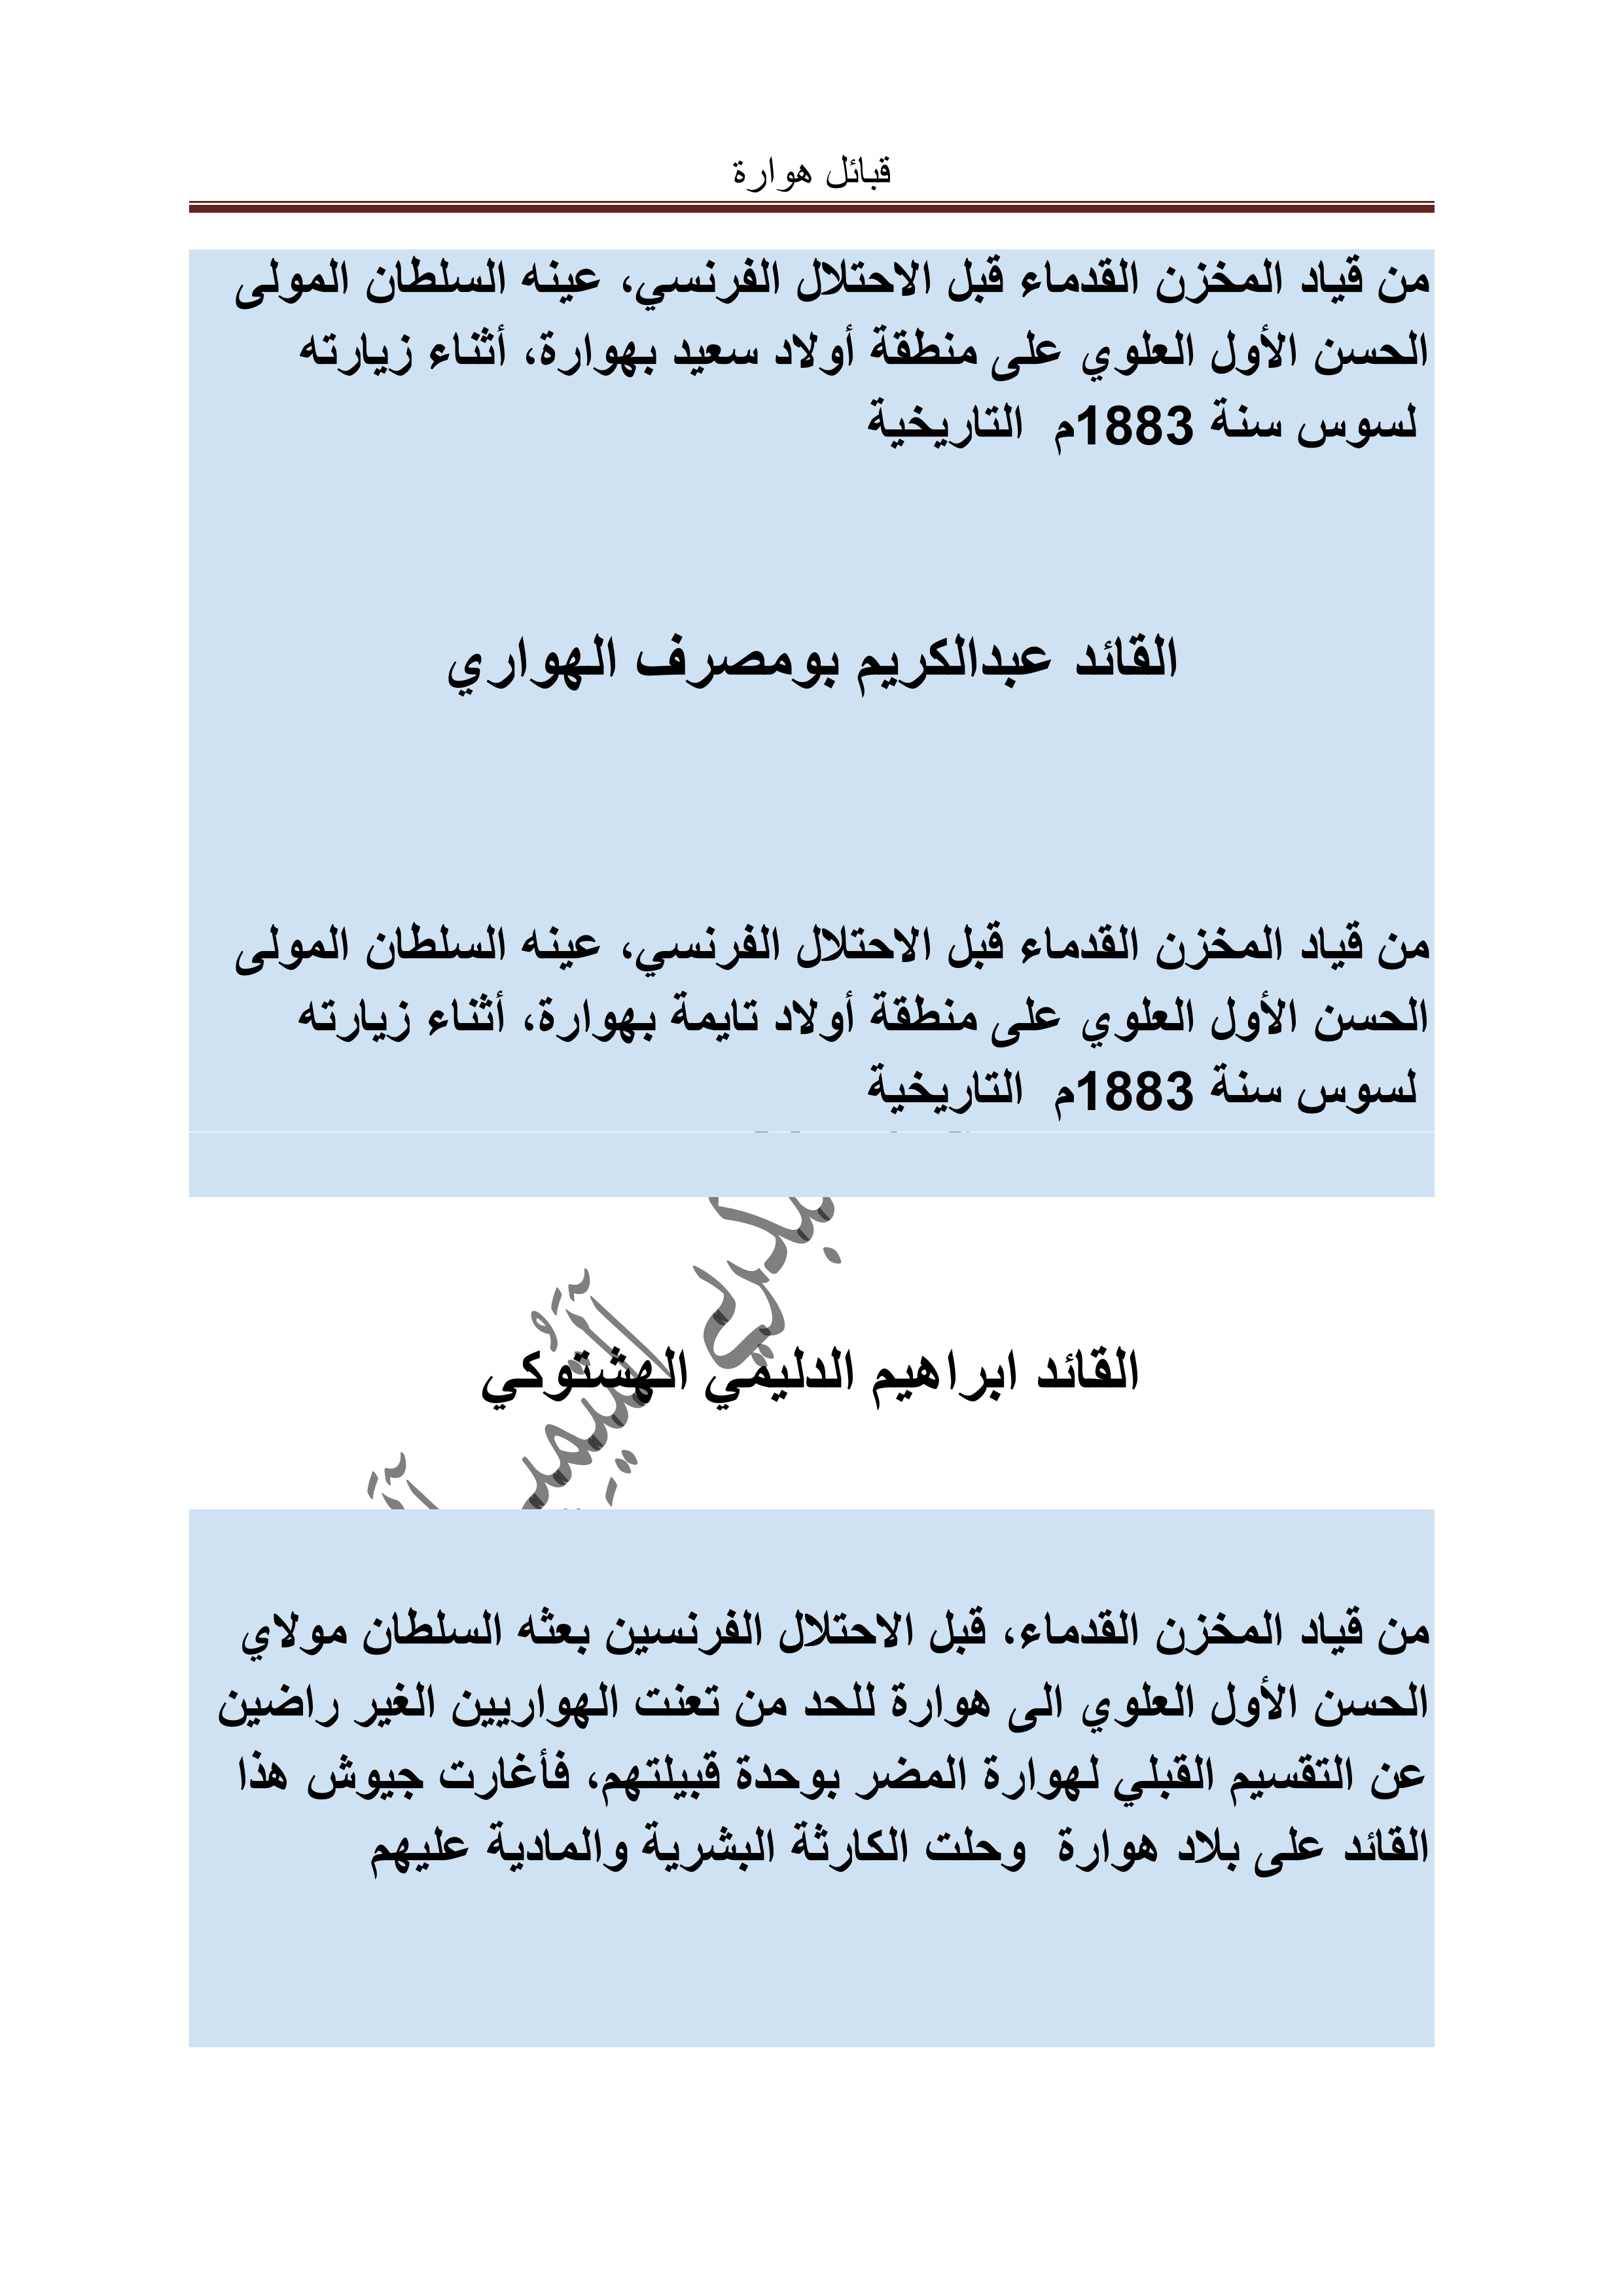 قبائل هوارة
من قياد المخزن القدماء قبل الاحتلال الفرنسي، عينه السلطان المولى
الحسن الأول العلوي على منطقة أولاد سعيد بهوارة، أثناء زيارته
لسوس سنة 1883م التاريخية
القائد عبدالكريم بومصرف الهواري
من قياد المخزن القدماء قبل الاحتلال الفرنسي، عينه السلطان المولى
الحسن الأول العلوي على منطقة أولاد تايمة بهوارة، أثناء زيارته
لسوس سنة 1883م التاريخية
القائد ابراهيم الدليمي الهشتوكي
من قياد المخزن القدماء، قبل الاحتلال الفرنسين بعثه السلطان مولاي
الحسن الأول العلوي الى هوارة للحد من تعنت الهواريين الغير راضين
عن التقسيم القبلي لهوارة المضر بوحدة قبيلتهم، فأغارت جيوش هذا
القائد على بلاد هوارة وحلت الكارثة البشرية والمادية عليهم